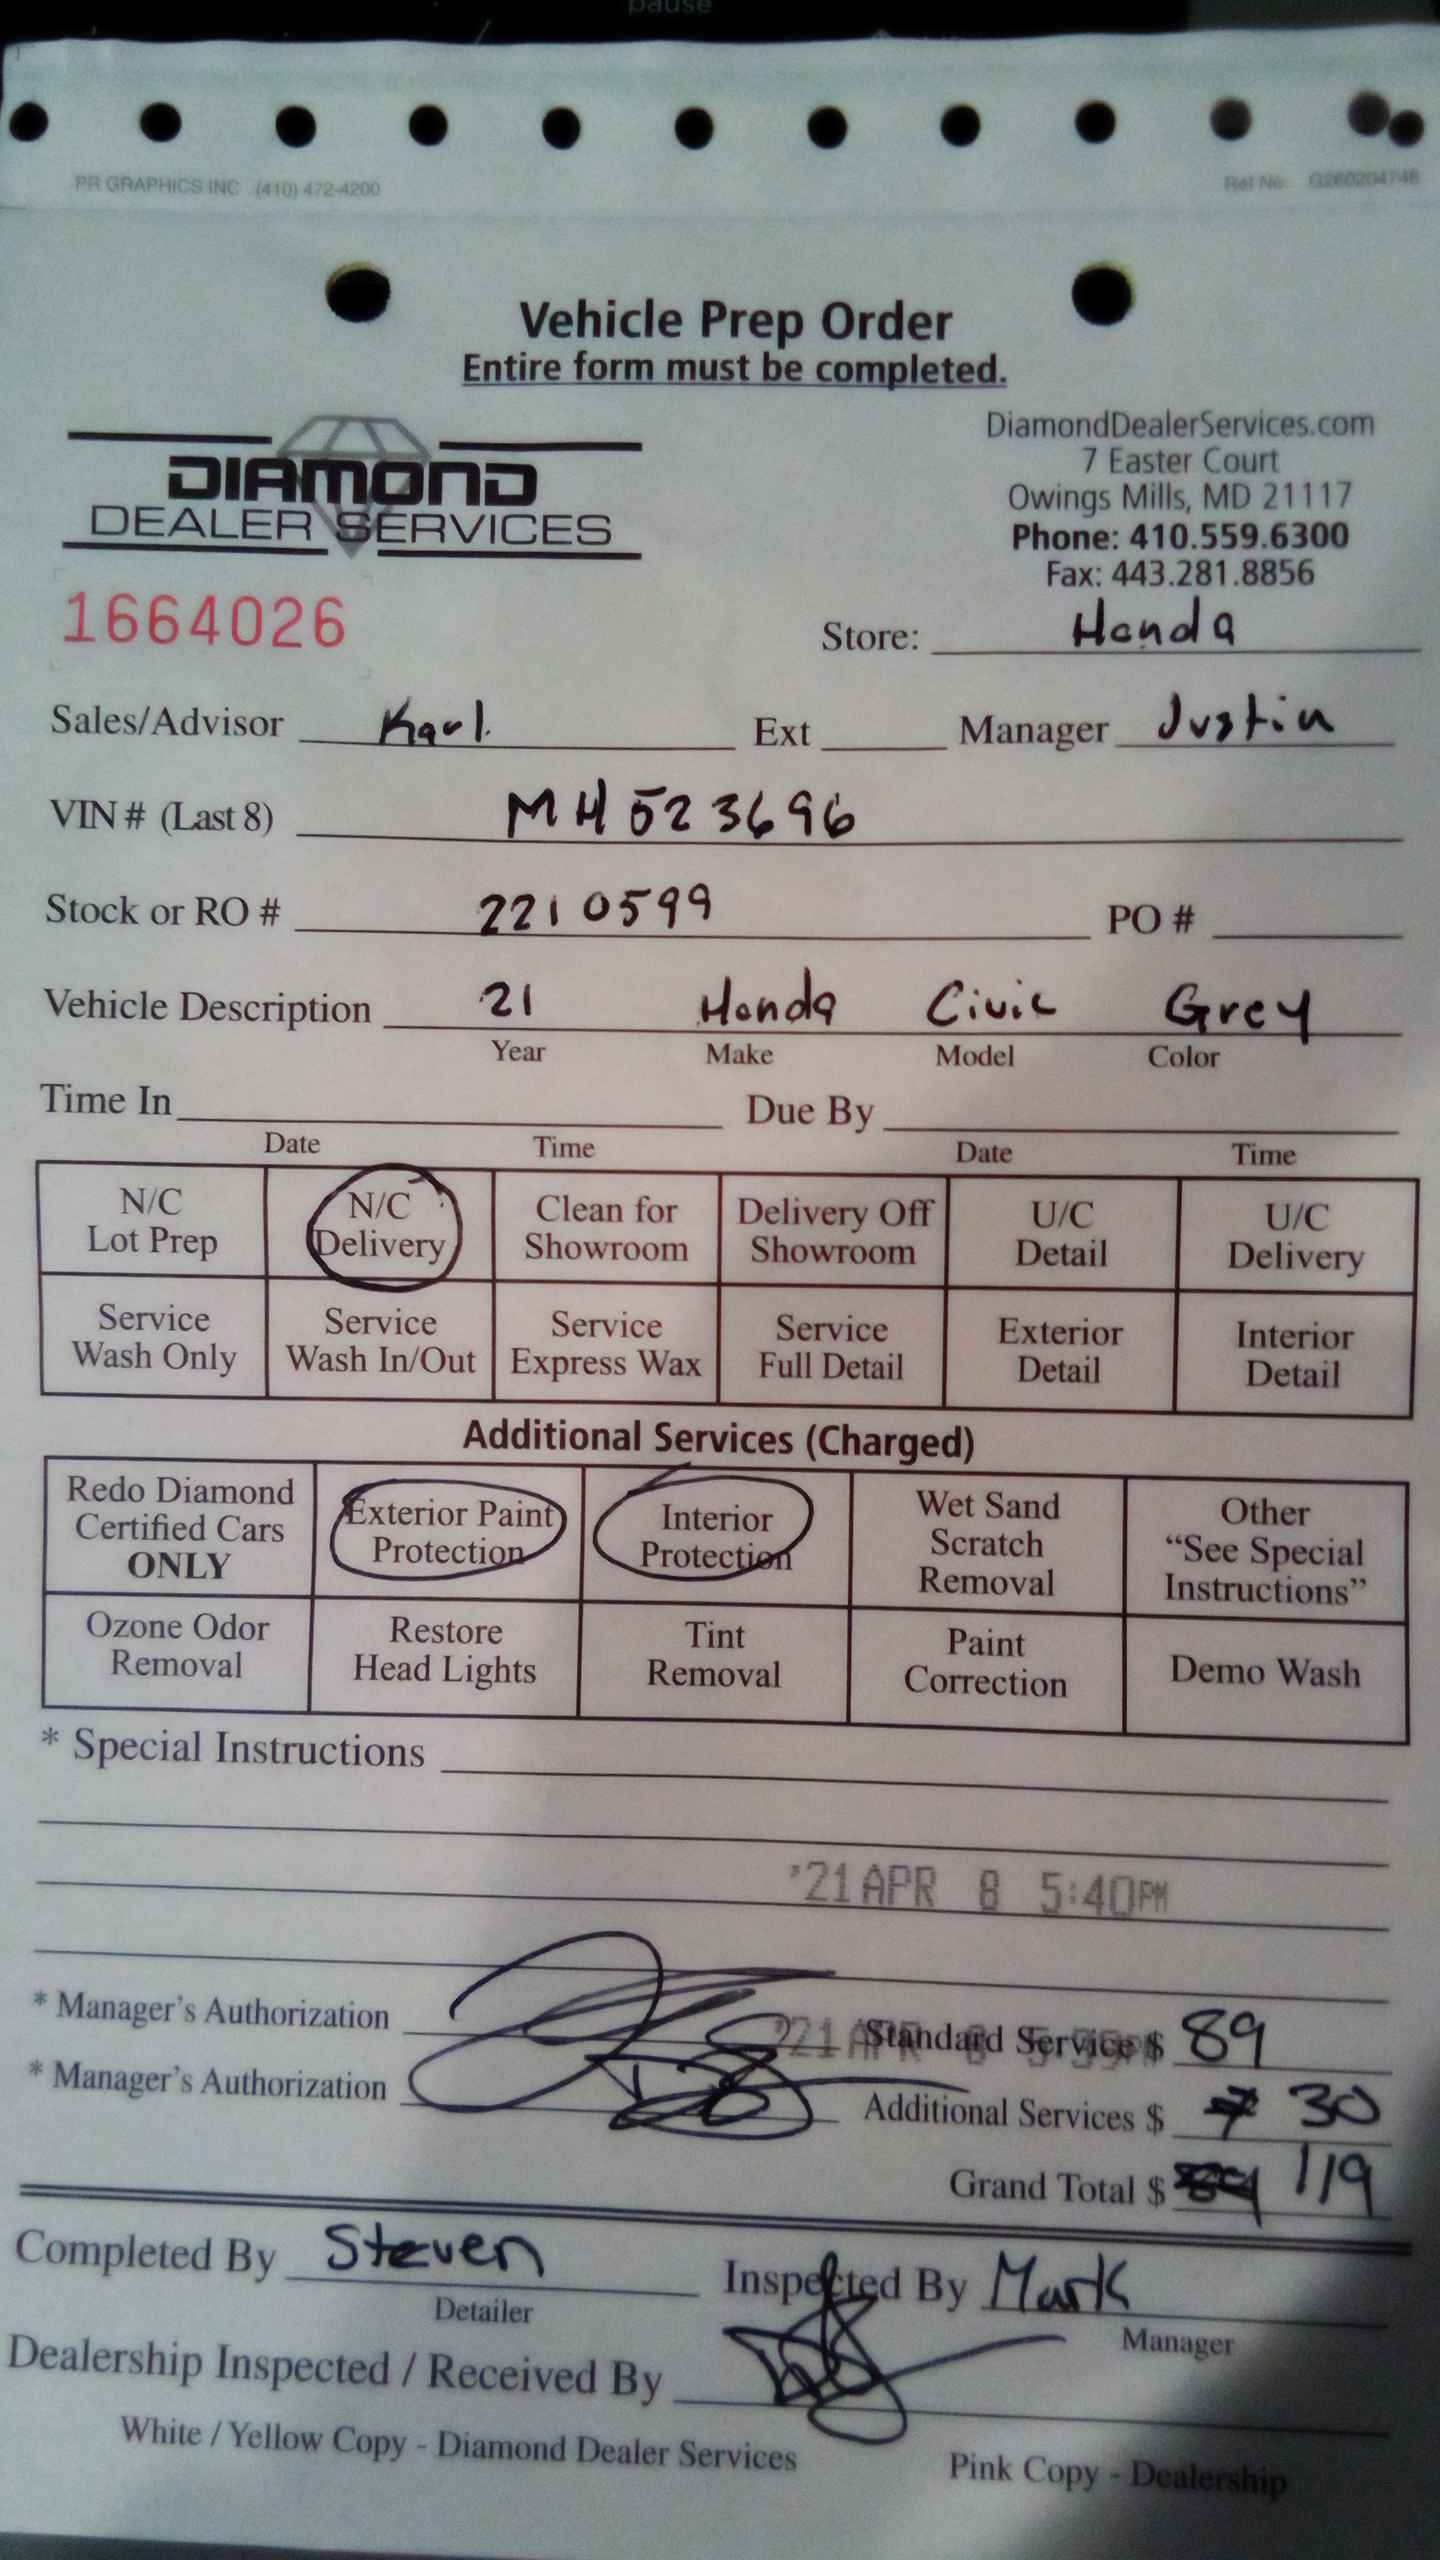 pause
PR GRAPHICS INC (410) 472-4200 Ref No: G260204746
Vehicle Prep Order
Entire form must be completed.
DIAMOND
DEALER SERVICES
DiamondDealerServices.com
7 Easter Court
Owings Mills, MD 21117
Phone: 410.559.6300
Fax: 443.281.8856
1664026
Store: Honda
Sales/Advisor Karl. Ext Manager Justin
VIN # (Last 8) MH523696
Stock or RO # 2210599 PO #
Vehicle Description 21 Honda Civic Grey
Year Make Model Color
Time In Due By
Date Time Date Time
N/C Lot Prep N/C Delivery Clean for Showroom Delivery Off Showroom U/C Detail U/C Delivery
Service Wash Only Service Wash In/Out Service Express Wax Service Full Detail Exterior Detail Interior Detail
Additional Services (Charged)
Redo Diamond Certified Cars ONLY Exterior Paint Protection Interior Protection Wet Sand Scratch Removal Other "See Special Instructions"
Ozone Odor Removal Restore Head Lights Tint Removal Paint Correction Demo Wash
* Special Instructions
'21 APR 8 5:40PM
* Manager's Authorization Standard Service $ 89
* Manager's Authorization Additional Services $ 30
Grand Total $ 119
Completed By Steven Inspected By Mark
Detailer Manager
Dealership Inspected / Received By
White / Yellow Copy - Diamond Dealer Services Pink Copy - Dealership